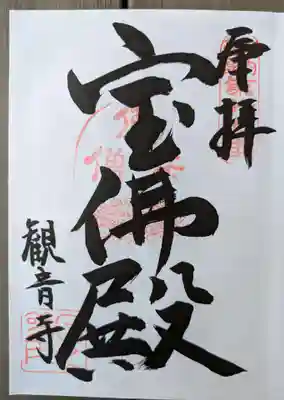 奉拝
宝佛殿
観音寺